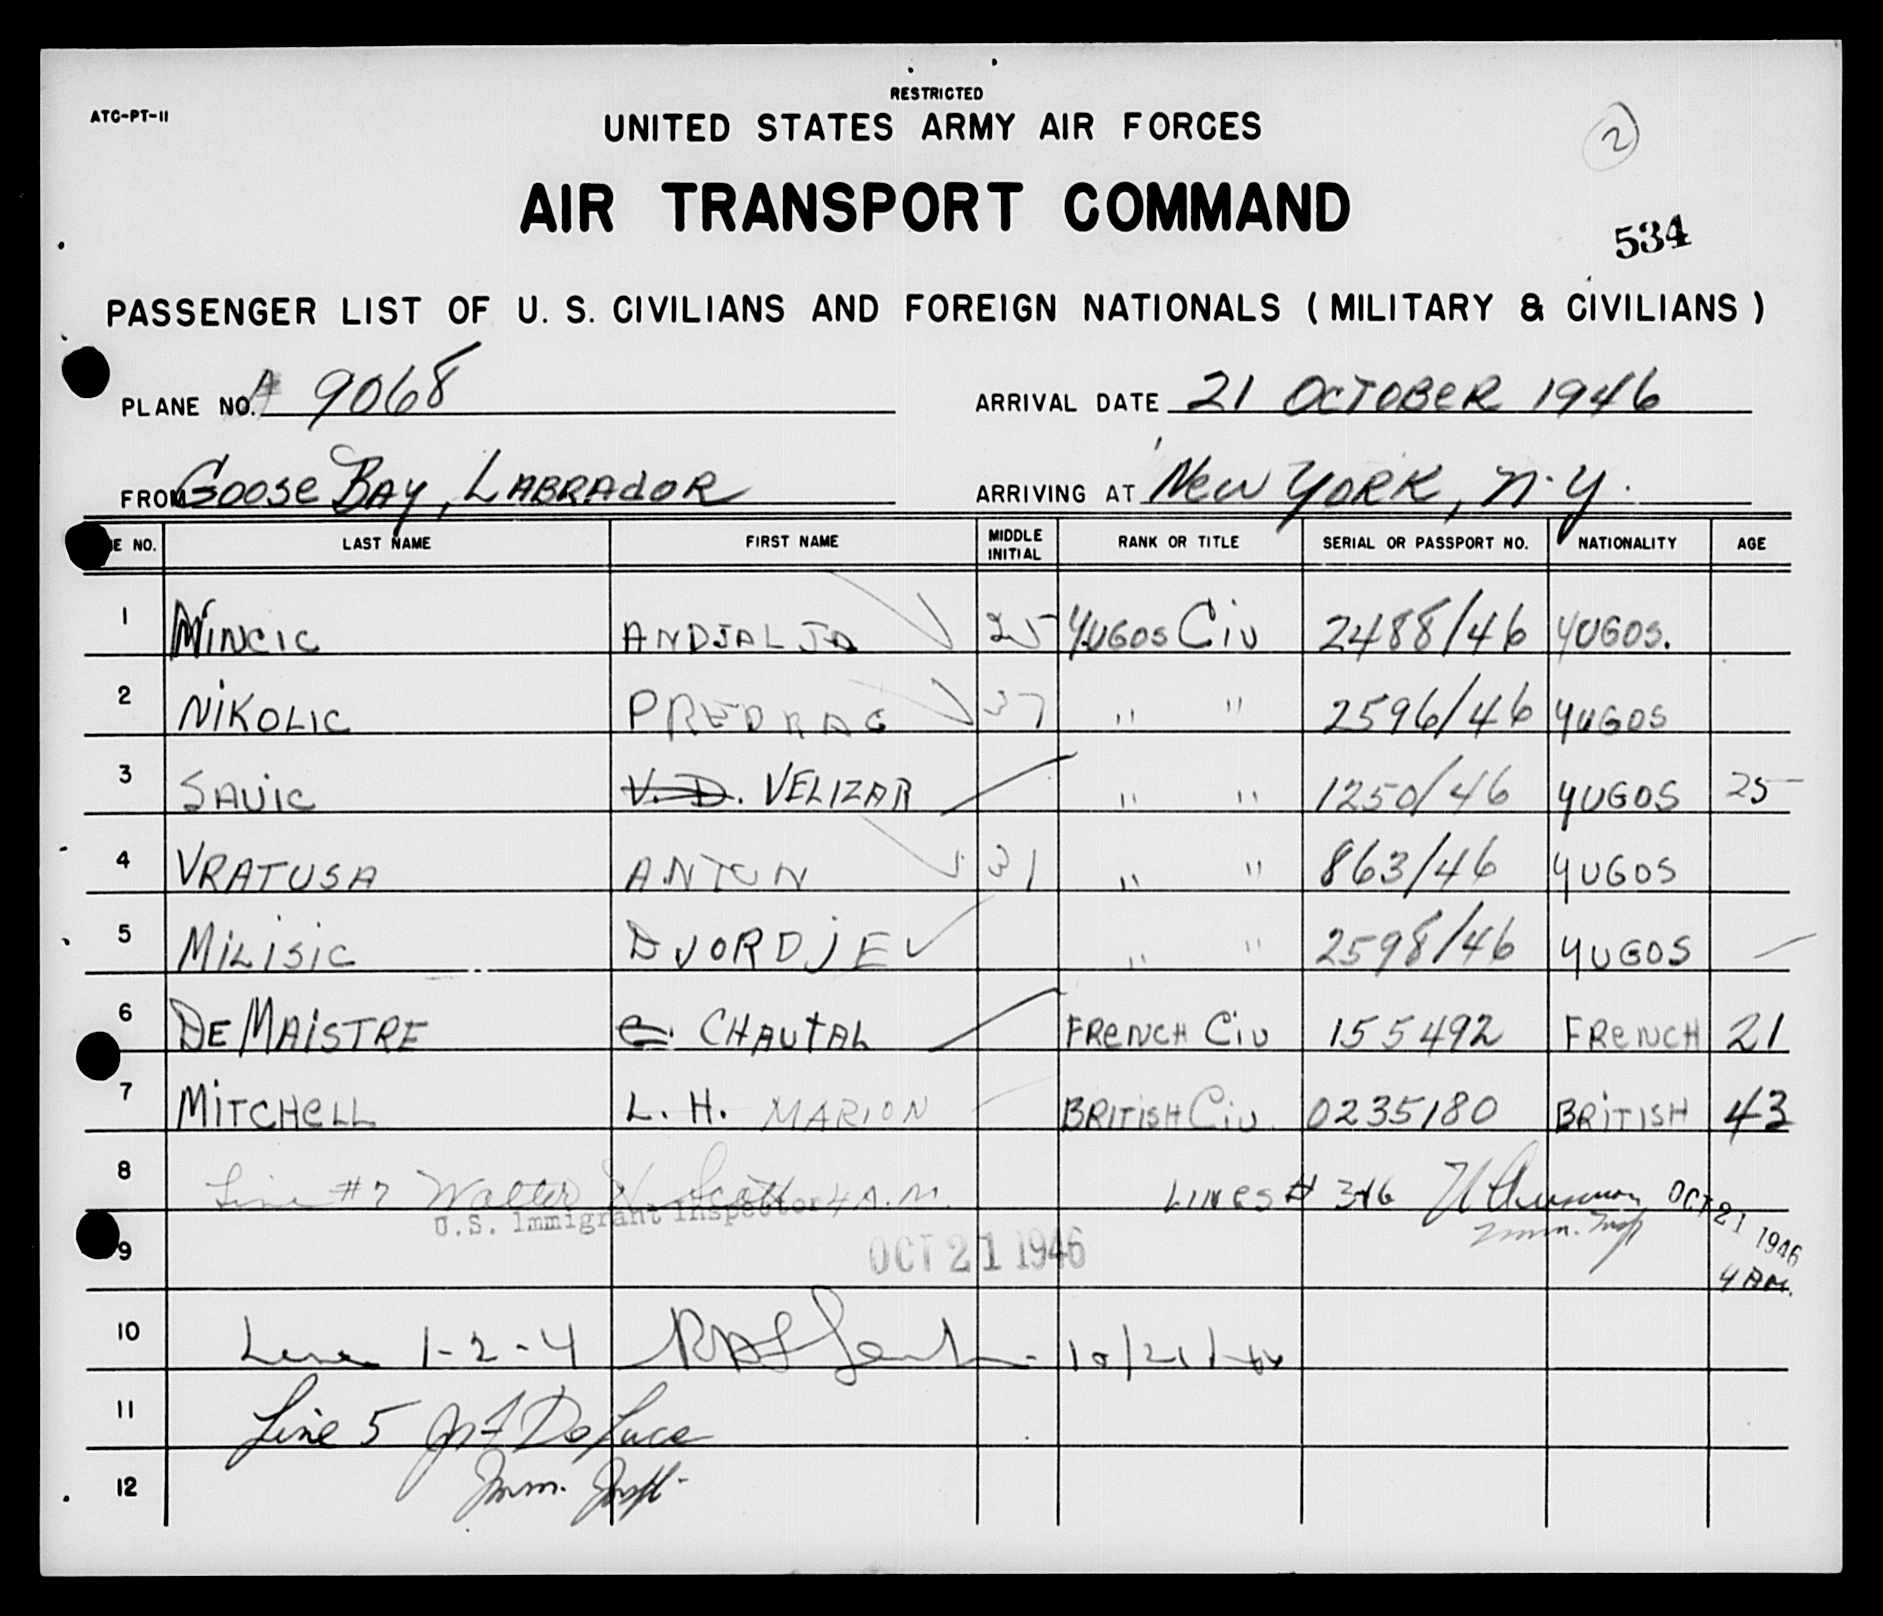 RESTRICTED
ATC-PT-11
UNITED STATES ARMY AIR FORCES
2
AIR TRANSPORT COMMAND
534
PASSENGER LIST OF U. S. CIVILIANS AND FOREIGN NATIONALS ( MILITARY & CIVILIANS )
PLANE NO. A 9068 ARRIVAL DATE 21 OCTOBER 1946
FROM GOOSE BAY, LABRADOR ARRIVING AT NEW YORK, N.Y.
E NO. LAST NAME FIRST NAME MIDDLE INITIAL RANK OR TITLE SERIAL OR PASSPORT NO. NATIONALITY AGE
1 MINCIC ANDJALJA 25 YUGOS CIV 2488/46 YUGOS.
2 NIKOLIC PREDRAG 37 " " 2596/46 YUGOS
3 SAVIC V. D. VELIZAR " " 1250/46 YUGOS 25
4 VRATUSA ANTON 31 " " 863/46 YUGOS
5 MILISIC DJORDJE " " 2598/46 YUGOS
6 DE MAISTRE C. CHAUTAL FRENCH CIV 155492 FRENCH 21
7 MITCHELL L. H. MARION BRITISH CIV 0235180 BRITISH 43
8 Line #7 Walter N. Scott 4 A.M. LINES # 3+6 OCT 21 1946
U.S. Immigrant Inspector Imm. Insp
9 OCT 21 1946 4 AM.
10 Lines 1-2-4 10/21/46
11 Line 5 DeLuca
12 Imm. Insp.